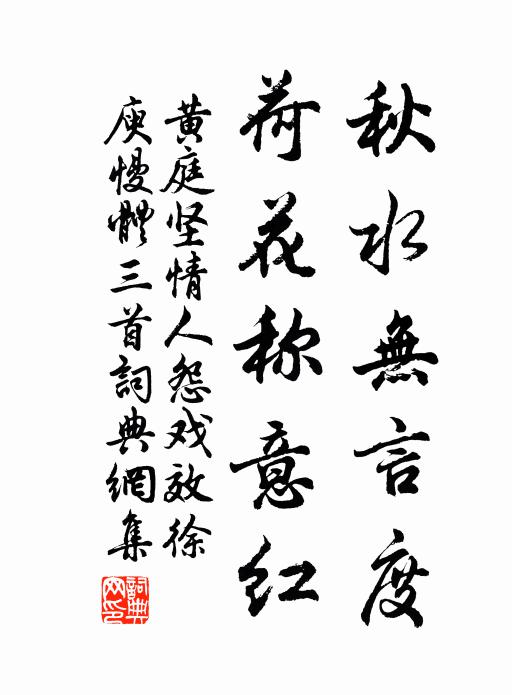 秋水無言度
荷花称意红
黄庭坚情人怨戏效徐
庾慢體三首詞典網集
詞典网印